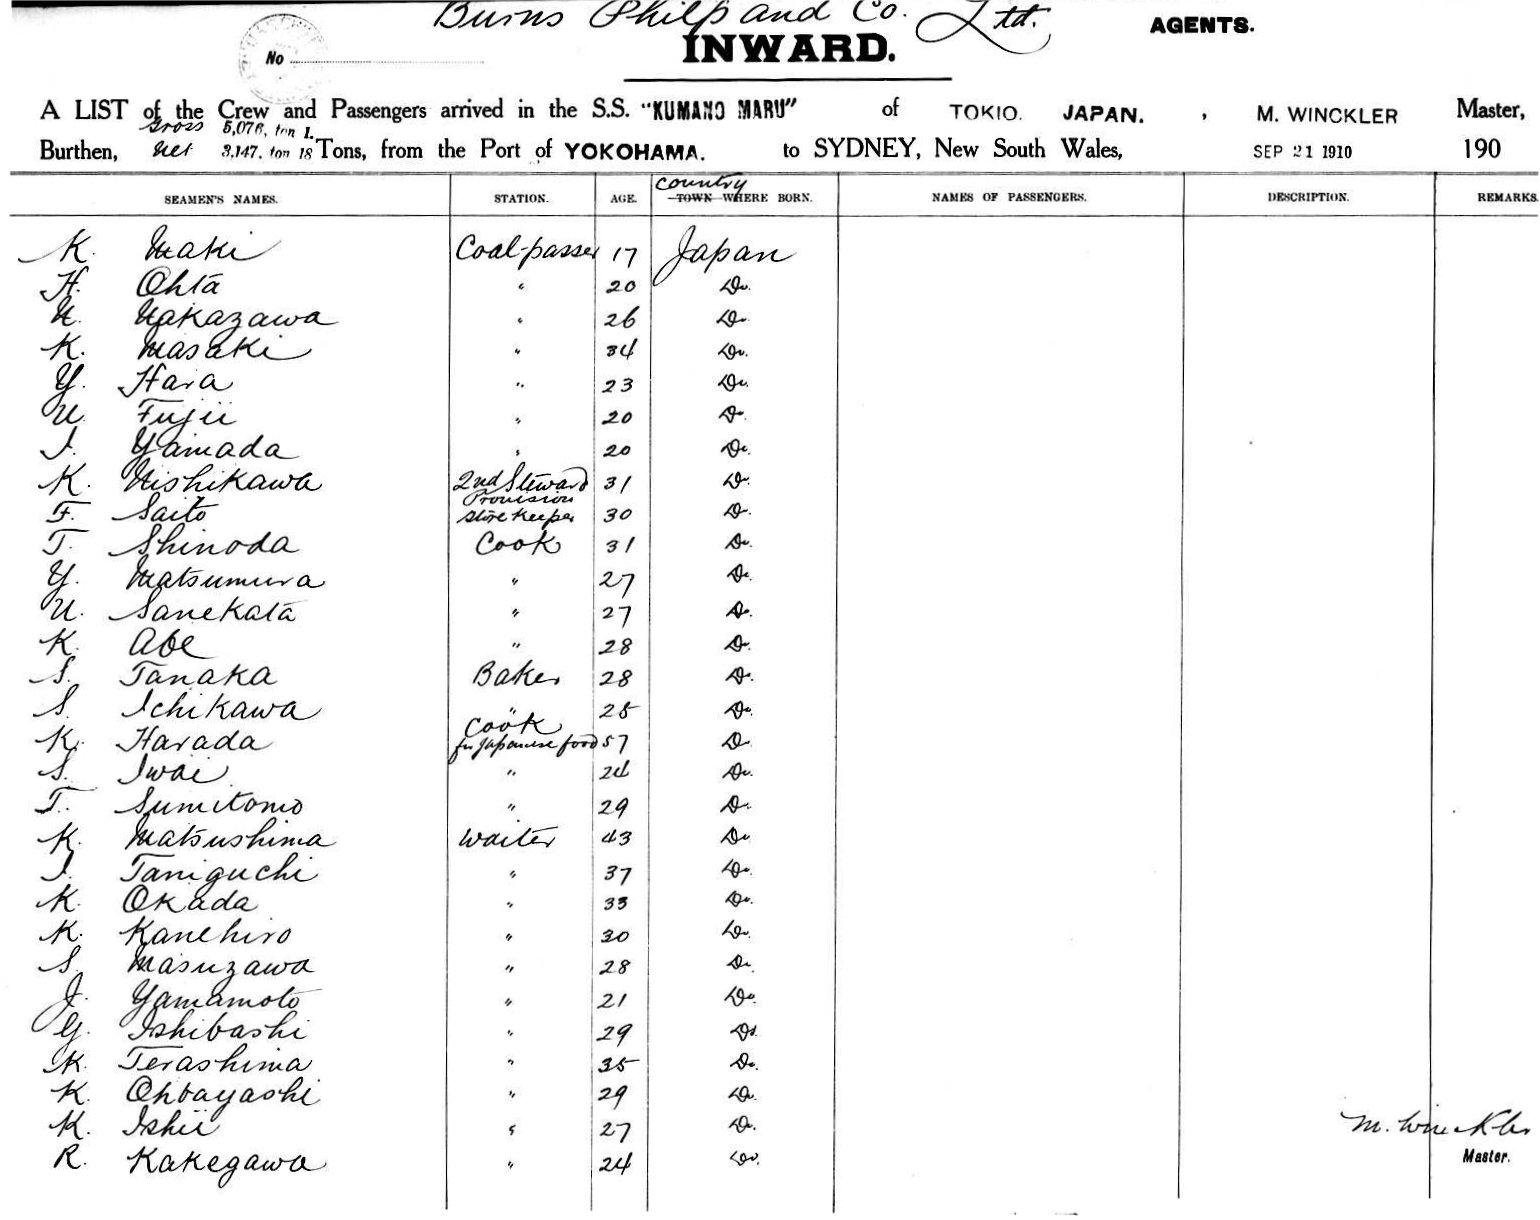 Burns Philp and Co. Ltd. AGENTS.
INWARD.
No
A LIST of the Crew and Passengers arrived in the S.S. "KUMANO MARU" of TOKIO. JAPAN. , M. WINCKLER Master,
Gross 5,076, ton 1.
Burthen, Net 3,147, ton 18 Tons, from the Port of YOKOHAMA. to SYDNEY, New South Wales, SEP 21 1910 190
SEAMEN'S NAMES. STATION. AGE. Country TOWN WHERE BORN. NAMES OF PASSENGERS. DESCRIPTION. REMARKS
K. Maki Coal-passer 17 Japan
H. Ohta " 20 Do.
N. Nakazawa " 26 Do.
K. Masaki " 34 Do.
Y. Hara " 23 Do.
U. Fujii " 20 Do.
I. Yamada " 20 Do.
K. Nishikawa 2nd Steward 31 Do.
F. Saito Provision Store Keeper 30 Do.
T. Shinoda Cook 31 Do.
Y. Matsumura " 27 Do.
U. Sanekata " 27 Do.
K. Abe " 28 Do.
S. Tanaka Baker 28 Do.
S. Ichikawa " 25 Do.
K. Harada Cook for Japanese food 57 Do.
S. Iwai " 24 Do.
T. Sumitomo " 29 Do.
K. Matsushima Waiter 43 Do.
I. Taniguchi " 37 Do.
K. Okada " 33 Do.
K. Kanehiro " 30 Do.
S. Masuzawa " 28 Do.
J. Yamamoto " 21 Do.
G. Ishibashi " 29 Do.
K. Terashima " 35 Do.
K. Ohbayashi " 29 Do.
K. Ishii " 27 Do.
R. Kakegawa " 24 Do.
M. Winckler
Master.